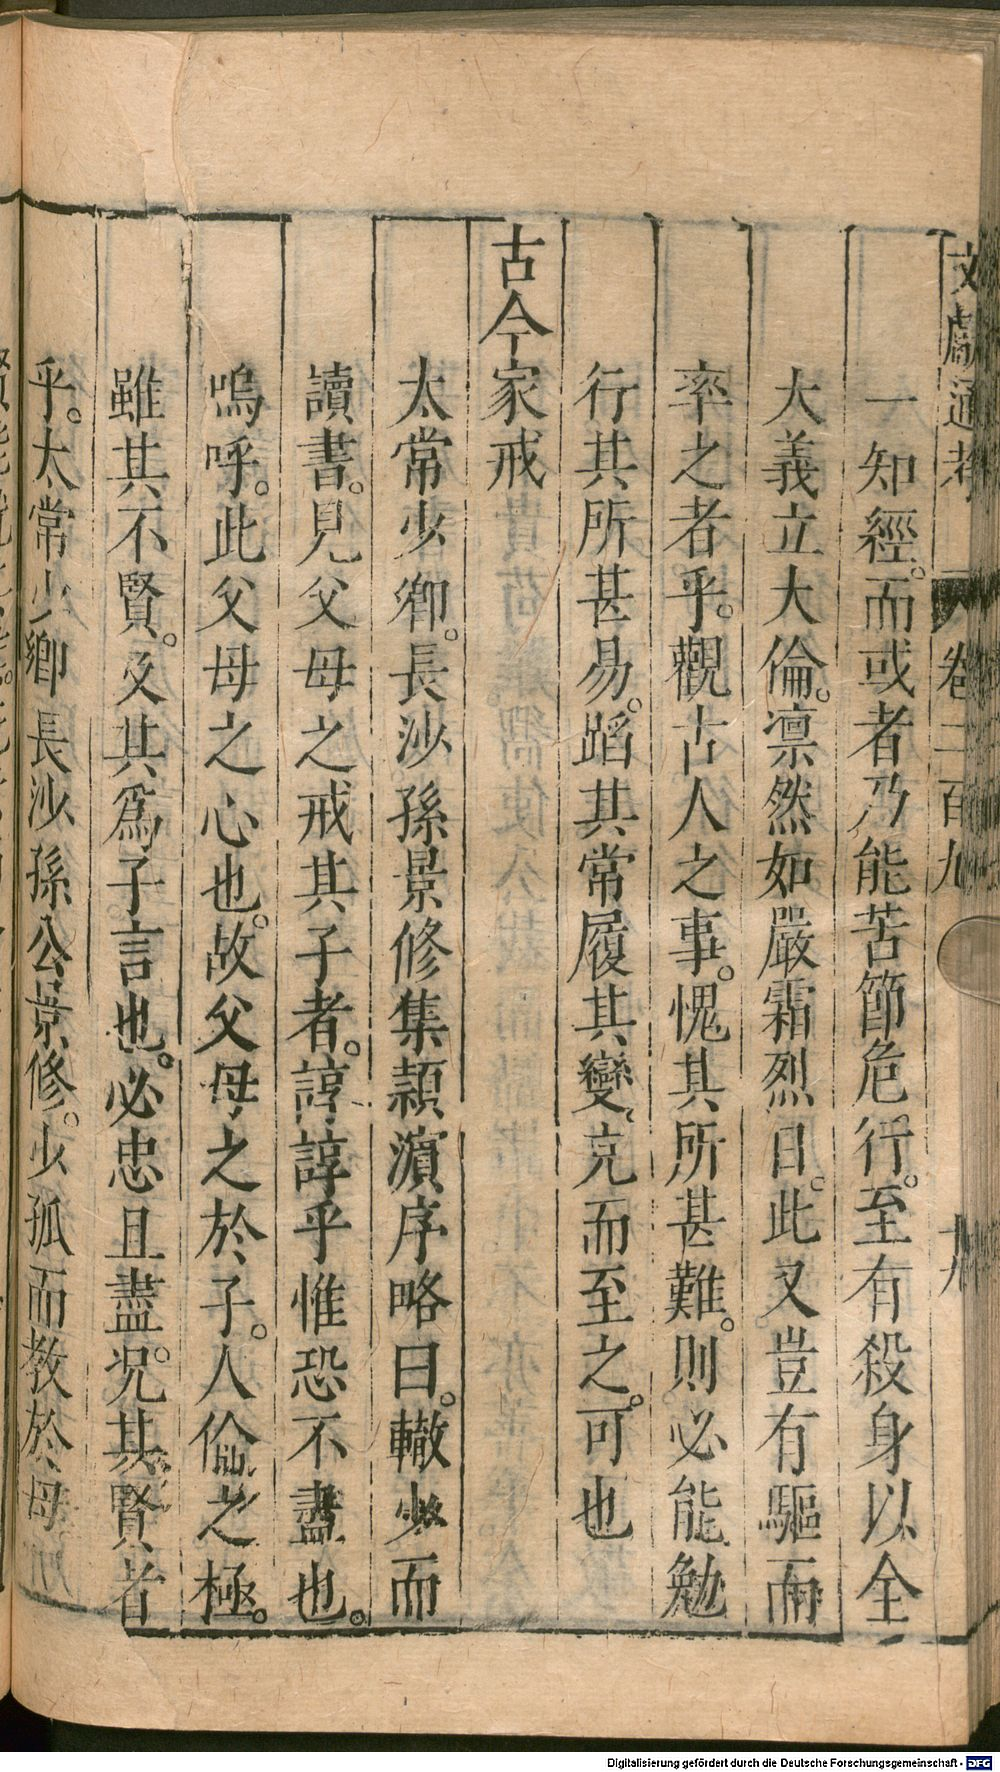 文獻通考 卷二百九 十九
一知經。而或者乃能苦節危行。至有殺身以全
大義立大倫。凛然如嚴霜烈日。此又豈有驅而
率之者乎。觀古人之事。愧其所甚難。則必能勉
行其所甚易。蹈其常履其變。充而至之。可也
古今家戒
太常少卿。長沙孫景修集潁濵序略曰。轍少而
讀書。見父母之戒其子者。諄諄乎惟恐不盡也。
嗚呼。此父母之心也。故父母之於子。人倫之極。
雖其不賢。及其爲子言也。必忠且盡。况其賢者
乎。太常少卿長沙孫公景修。少孤而教於母
Digitalisierung gefördert durch die Deutsche Forschungsgemeinschaft - DFG